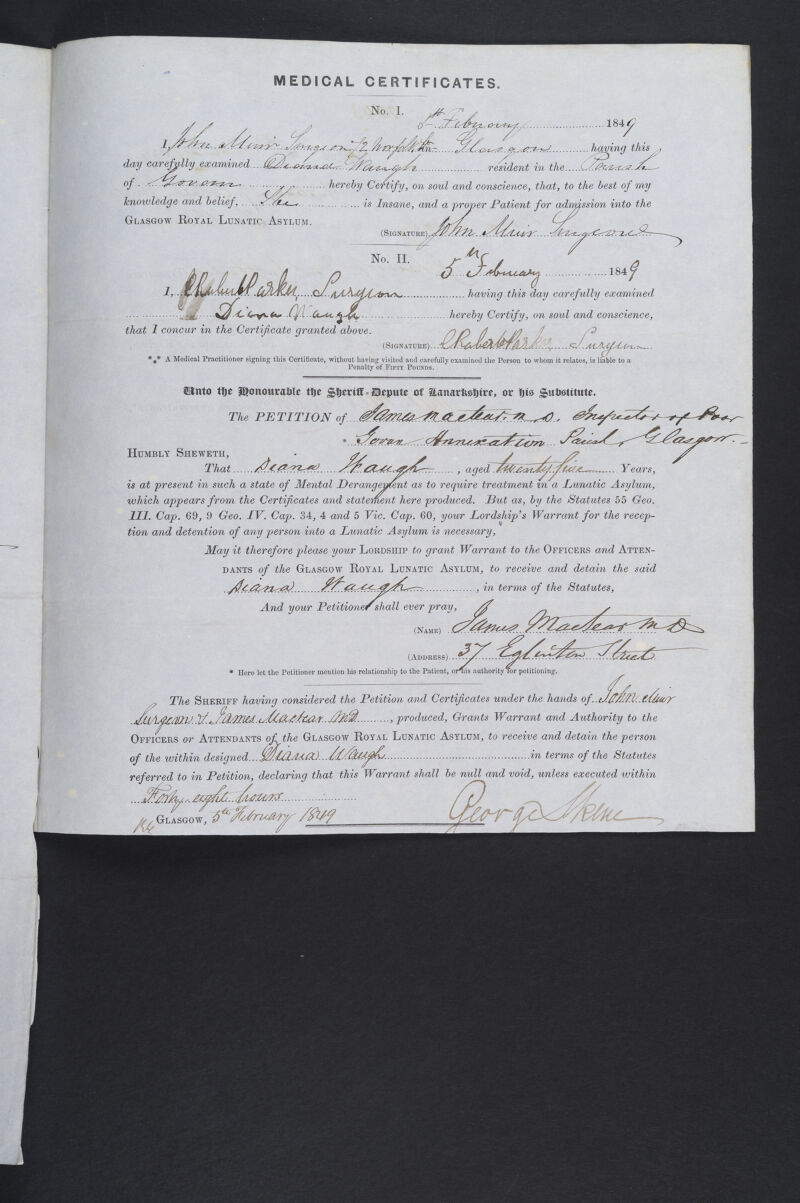 MEDICAL CERTIFICATES.
No. I.
5th February 1849
I, John Muir Surgeon in Glasgow having this
day carefully examined Diana Waugh resident in the Parish
of Govan hereby Certify, on soul and conscience, that, to the best of my
knowledge and belief, She is Insane, and a proper Patient for admission into the
GLASGOW ROYAL LUNATIC ASYLUM.
(SIGNATURE) John Muir Surgeon
No. II. 5th February 1849
I, Robert Parker, Surgeon having this day carefully examined
Diana Waugh hereby Certify, on soul and conscience,
that I concur in the Certificate granted above.
(SIGNATURE) Robert Parker, Surgeon
*** A Medical Practitioner signing this Certificate, without having visited and carefully examined the Person to whom it relates, is liable to a
Penalty of FIFTY POUNDS.
Unto the Honourable the Sheriff-Depute of Lanarkshire, or his Substitute.
The PETITION of James Maclear M.D. Inspector of Poor
* Govan Annexation Parish Glasgow.
HUMBLY SHEWETH,
That Diana Waugh, aged twenty five Years,
is at present in such a state of Mental Derangement as to require treatment in a Lunatic Asylum,
which appears from the Certificates and statement here produced. But as, by the Statutes 55 Geo.
III. Cap. 69, 9 Geo. IV. Cap. 34, 4 and 5 Vic. Cap. 60, your Lordship's Warrant for the recep-
tion and detention of any person into a Lunatic Asylum is necessary,
May it therefore please your LORDSHIP to grant Warrant to the OFFICERS and ATTEN-
DANTS of the GLASGOW ROYAL LUNATIC ASYLUM, to receive and detain the said
Diana Waugh, in terms of the Statutes,
And your Petitioner shall ever pray,
(NAME) James Maclear MD
(ADDRESS) 37 Eglinton Street
* Here let the Petitioner mention his relationship to the Patient, or his authority for petitioning.
The SHERIFF having considered the Petition and Certificates under the hands of John Muir
Surgeon & James Maclear MD, produced, Grants Warrant and Authority to the
OFFICERS or ATTENDANTS of the GLASGOW ROYAL LUNATIC ASYLUM, to receive and detain the person
of the within designed Diana Waugh in terms of the Statutes
referred to in Petition, declaring that this Warrant shall be null and void, unless executed within
Forty eight hours
GLASGOW, 5th February 1849 George Skene